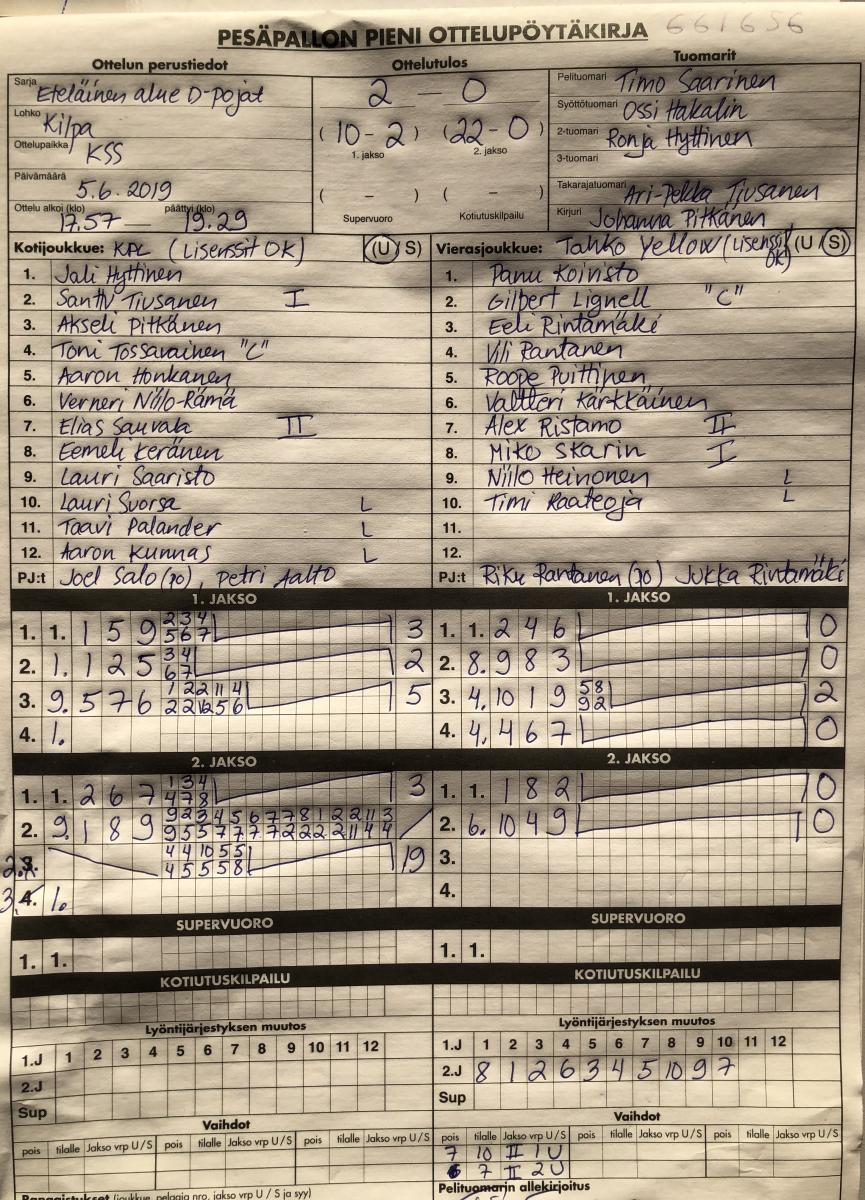 PESÄPALLON PIENI OTTELUPÖYTÄKIRJA 661656
Ottelun perustiedot Ottelutulos Tuomarit
Sarja Eteläinen alue D-pojat
Lohko Kilpa
Ottelupaikka KSS
Päivämäärä 5.6.2019
Ottelu alkoi (klo) 17.57 — päättyi (klo) 19.29
2 – 0
(10 – 2) (22 – 0)
1. jakso 2. jakso
( – ) ( – )
Supervuoro Kotiutuskilpailu
Pelituomari Timo Saarinen
Syöttötuomari Ossi Hakalin
2-tuomari Ronja Hyttinen
3-tuomari
Takarajatuomari Ari-Pekka Tiusanen
Kirjuri Johanna Pitkänen
Kotijoukkue: KPL (Lisenssit OK) (U / S)
1. Jali Hyttinen
2. Santtu Tiusanen I
3. Akseli Pitkänen
4. Toni Tossavainen "C"
5. Aaron Honkanen
6. Verneri Niilo-Rämä
7. Elias Sauvala II
8. Eemeli Keränen
9. Lauri Saaristo
10. Lauri Suorsa L
11. Taavi Palander L
12. Aaron Kunnas L
PJ:t Joel Salo (po), Petri Aalto
Vierasjoukkue: Tahko Yellow (Lisenssit OK) (U / S)
1. Panu Koivisto
2. Gilbert Lignell "C"
3. Eeli Rintamäki
4. Vili Rantanen
5. Roope Puittinen
6. Valtteri Kärkkäinen
7. Alex Ristamo II
8. Miko Skarin I
9. Niilo Heinonen L
10. Timi Raateoja L
11.
12.
PJ:t Riku Rantanen (po) Jukka Rintamäki
1. JAKSO
1. 1. 1 5 9 2 3 4 3
5 6 7
2. 1. 1 2 5 3 4 2
6 7
3. 9. 5 7 6 1 2 2 11 4 5
2 2 12 5 6
4. 1.
1. JAKSO
1. 1. 2 4 6 0
2. 8. 9 8 3 0
3. 4. 10 1 9 5 8 2
9 2
4. 4. 4 6 7 0
2. JAKSO
1. 1. 2 6 7 1 3 4 3
4 7 8
2. 9. 1 8 9 9 2 3 4 5 6 7 7 8 1 2 2 11 3
9 5 5 7 7 7 7 2 2 2 2 11 4 4
4 4 10 5 5 19
4 5 5 5 8
3. 4. 1.
2. JAKSO
1. 1. 1 8 2 0
2. 6. 10 4 9 0
3.
4.
SUPERVUORO
1. 1.
SUPERVUORO
1. 1.
KOTIUTUSKILPAILU
KOTIUTUSKILPAILU
Lyöntijärjestyksen muutos
1.J 1 2 3 4 5 6 7 8 9 10 11 12
2.J
Sup
Lyöntijärjestyksen muutos
1.J 1 2 3 4 5 6 7 8 9 10 11 12
2.J 8 1 2 6 3 4 5 10 9 7
Sup
Vaihdot
pois tilalle Jakso vrp U / S pois tilalle Jakso vrp U / S pois tilalle Jakso vrp U / S
Vaihdot
pois tilalle Jakso vrp U / S pois tilalle Jakso vrp U / S pois tilalle Jakso vrp U / S
7 10 II 1 U
6 7 II 2 U
Rangaistukset (joukkue, pelaaja nro, jakso vrp U / S ja syy)
Pelituomarin allekirjoitus